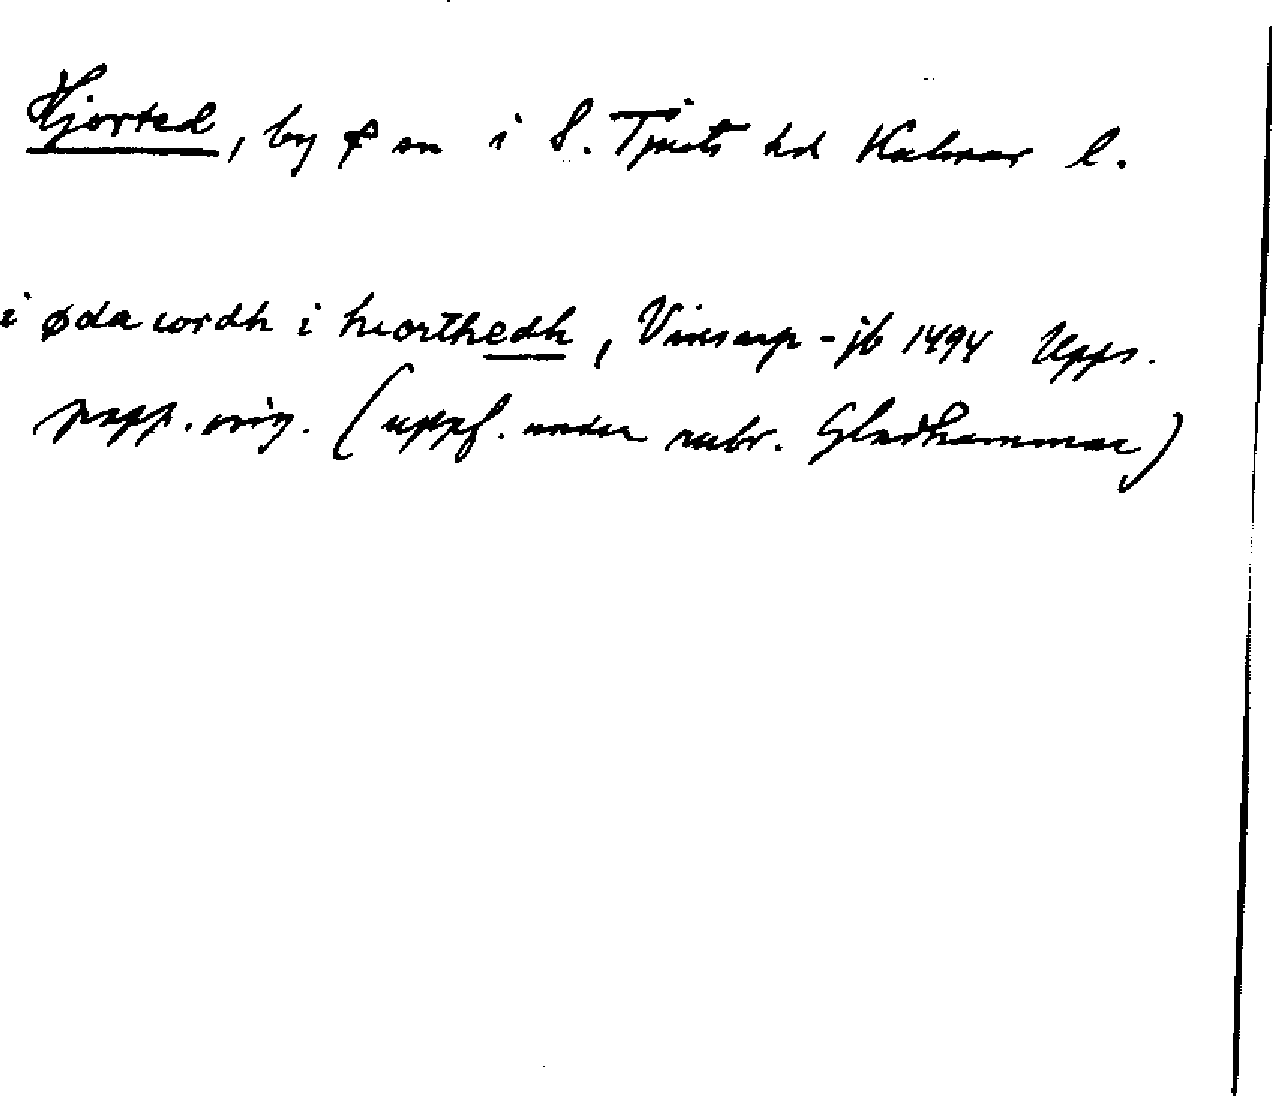 Hjorted, by & sn i S. Tjusts hd Kalmar l.
i øda wordh i hiorthedh, Vinsarp-jb 1494 Upps.
papp. orig. (uppf. under rubr. Gladhammar)